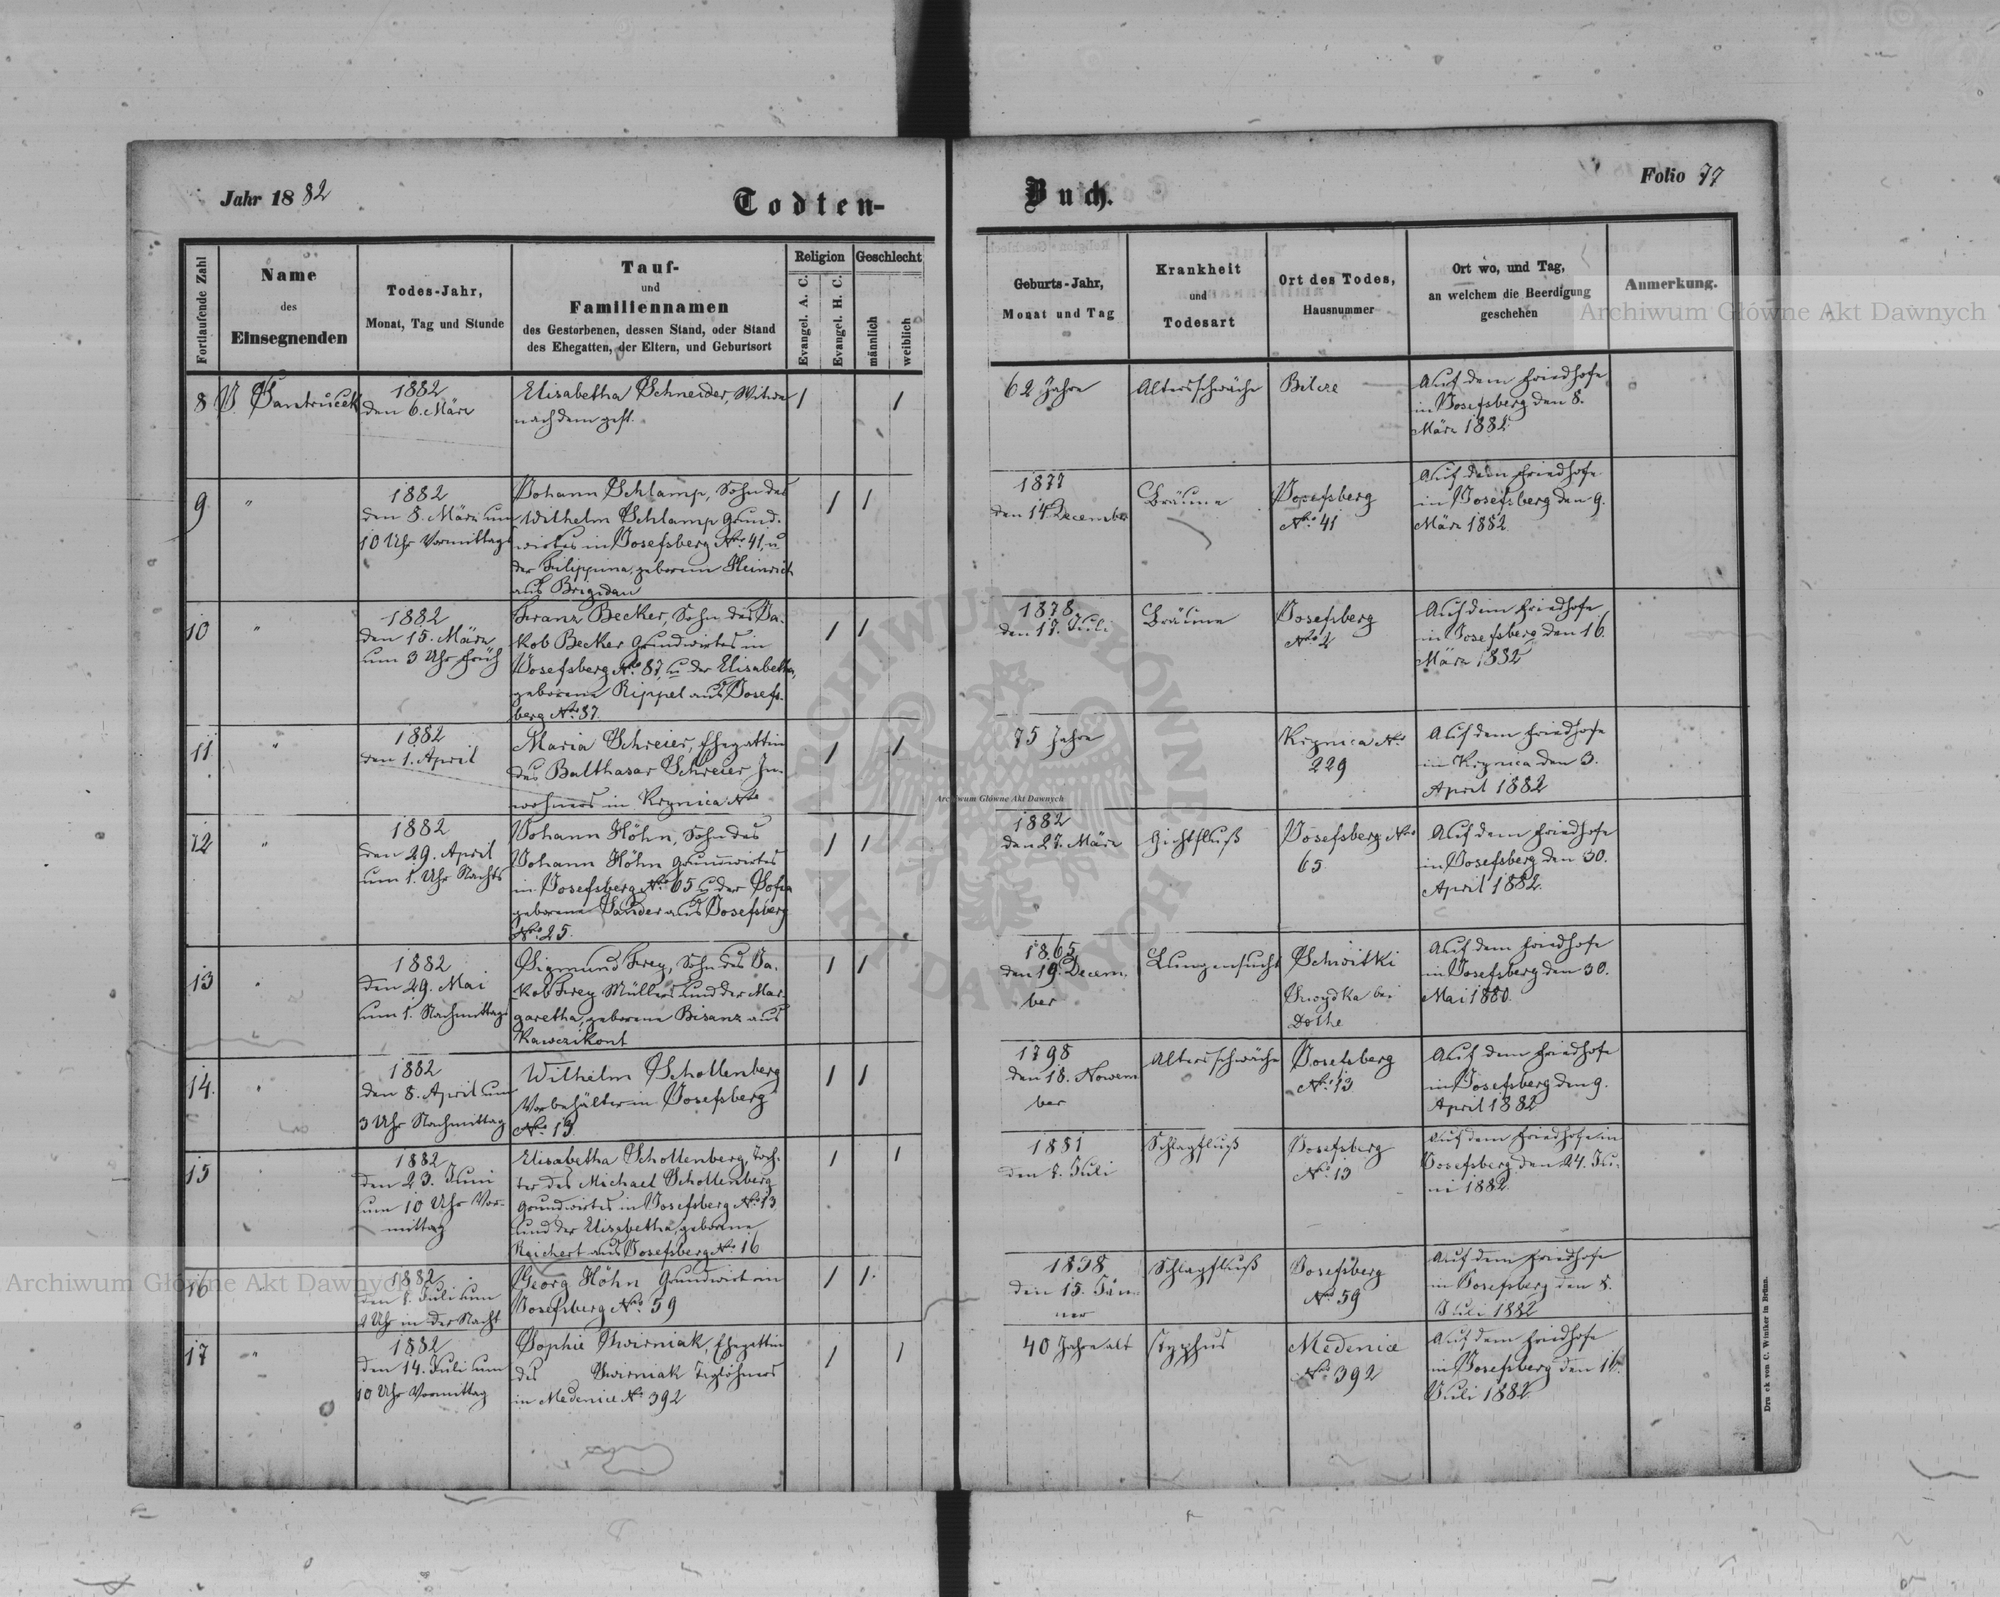 Jahr 1882
Todten-
Buch.
Folio 77
Fortlaufende Zahl
Name
des
Einsegnenden
Todes-Jahr,
Monat, Tag und Stunde
Tauf-
und
Familiennamen
des Gestorbenen, dessen Stand, oder Stand
des Ehegatten, der Eltern, und Geburtsort
Religion
Evangel. A. C.
Evangel. H. C.
Geschlecht
männlich
weiblich
Geburts-Jahr,
Monat und Tag
Krankheit
und
Todesart
Ort des Todes,
Hausnummer
Ort wo, und Tag,
an welchem die Beerdigung
geschehen
Anmerkung.
8
Santrucek
1882
den 6. März
Elisabetha Schneider, Witwe
nach dem gest.
/
/
62 Jahre
Altersschwäche
Bilcze
Auf dem Friedhofe
in Josefsberg den 8.
März 1882
9
"
1882
den 8. März um
10 Uhr Vormittags
Johann Schlamp, Sohn des
Wilhelm Schlamp Grund-
wirtes in Josefsberg No 41, u
der Filippina, geborenen Heinrich
aus Brigidau
/
/
1877
den 14. December
Bräune
Josefsberg
No. 41
Auf dem Friedhofe
in Josefsberg den 9.
März 1882
10
"
1882
den 15. März
um 3 Uhr früh
Franz Becker, Sohn des Ja-
kob Becker Grundwirtes in
Josefsberg No. 87, u der Elisabetha,
geborene Rippel aus Josefs-
berg No. 37.
/
/
1878
den 17. Juli
Bräune
Josefsberg
No 2
Auf dem Friedhofe
in Josefsberg den 16.
März 1882
11
"
1882
den 1. April
Maria Schreier, Ehegattin
des Balthasar Schreier In-
wohners in Krynica No
/
/
75 Jahre
Krynica No.
229
Auf dem Friedhofe
in Krynica den 3.
April 1882
12
"
1882
den 29. April
um 1. Uhr Nachts
Johann Höhn, Sohn des
Johann Höhn Grundwirtes
in Josefsberg No. 65 u der Sofia
geborene Sander aus Josefsberg
No. 25.
/
/
1882
den 27. März
Gichtfluß
Josefsberg No
65.
Auf dem Friedhofe
in Josefsberg den 30.
April 1882.
13
"
1882
den 29. Mai
um 1. Nachmittags
Sigmund Frey, Sohn des Ja-
kob Frey Müllers und der Mar-
garetha, geborene Bisanz aus
/
/
1865
den 19. Decem-
ber
Lungensucht
bei
Auf dem Friedhofe
in Josefsberg den 30.
Mai 1880.
14.
"
1882
den 8. April um
3 Uhr Nachmittag
Wilhelm Schollenberg
Vorbehälter in Josefsberg
No. 13
/
/
1798
den 18. Novem
ber
Altersschwäche
Josefsberg
No. 13
Auf dem Friedhofe
in Josefsberg den 9.
April 1882
15
"
1882
den 23. Juni
um 10 Uhr Vor-
mittag
Elisabetha Schollenberg, Toch-
ter des Michael Schollenberg
Grundwirtes in Josefsberg No. 13
und der Elisabetha, geborene
Reichert aus Josefsberg No. 16
/
/
1881
den 8. Juli
Schlagfluß
Josefsberg
No. 13
Auf dem Friedhofe in
Josefsberg den 24. Ju-
ni 1882.
16
"
1882
Juli um
Uhr in der Nacht
Georg Höhn Grundwirt in
Josefsberg No. 59
/
/
den 15. Jän-
ner
Schlagfluß
Josefsberg
No. 59
Auf dem Friedhofe
in Josefsberg den 8.
Juli 1882
17
"
1882
den 14. Juli um
10 Uhr Vormittag
Sophie Swirniak, Ehegattin
des Swirniak Taglöhners
in Medenice No 392
/
/
40 Jahre alt
Typhus
Medenice
No. 392
Auf dem Friedhofe
in Josefsberg den 16.
Juli 1882.
Druck von C. Winiker in Brünn.
Archiwum Główne Akt Dawnych
Archiwum Główne Akt Dawnych
Archiwum Główne Akt Dawnych
ARCHIWUM GŁÓWNE
AKT DAWNYCH